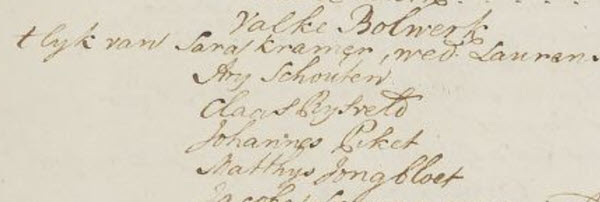 Valke Bolwerk
t lyk van Saras Kramer, wed. Lauren
Ary Schouten
Claas Rysveld
Johannes Piket
Matthys Jongbloet
Jacobus